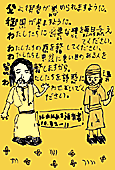 父よ、御名が崇められますように。
御国が来ますように。
わたしたちに必要な糧を毎日与えてください。
わたしたちの罪を赦してください。
わたしたちも自分に負い目のある人を
皆赦しますから。
わたしたちを誘惑に
遭わせないでください。
ルカによる福音書